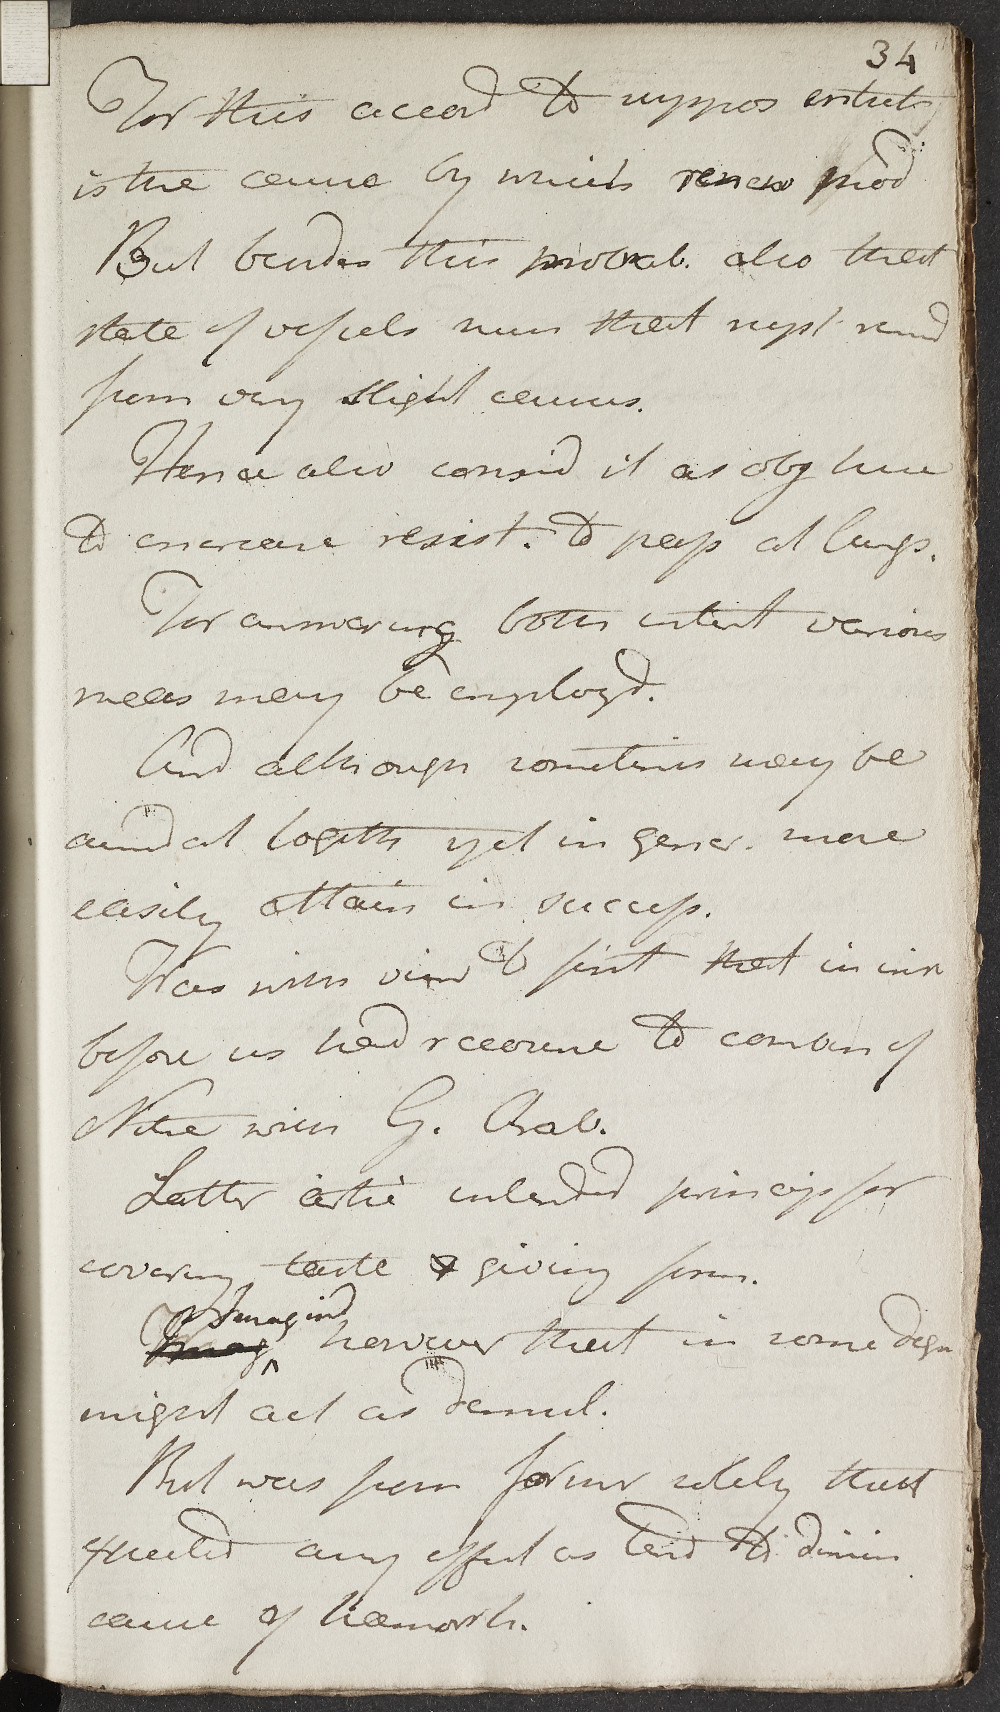 34
For this accord to suppos entirely
is the cause by which renew prod
But besides this probab. also that
state of vessels such that rupt renewd
from very slight causes.
Hence also consid it as obj here
to encrease resist. to pass at lungs.
For answering both intent various
meas may be employd.
And although sometimes may be
aimd at togeth yet in gener. more
easily attain in success.
Was with view to first that in inst
before us had recourse to combin of
Nitre with G. Arab.
Latter article intended princip for
covering taste & giving form.
Imag Imagind however that in some degre
might act as demul.
But was from former solely that
expected any effect as tend to dimin
cause of hæmorrh.